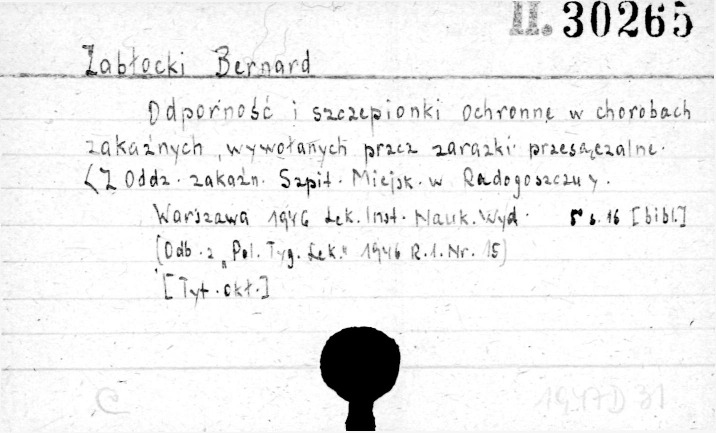 II. 30265
Zabłocki Bernard
Odporność i szczepionki ochronne w chorobach
zakaźnych, wywołanych przez zarazki przesączalne.
(Z Oddz. zakaźn. Szpit. Miejsk. w Radogoszczu).
Warszawa 1946 Lek. Inst. Nauk. Wyd. 8° s. 16 [bibl.]
(Odb. z „Pol. Tyg. Lek." 1946 R.1. Nr. 15)
[Tyt. okł.]
C 1947 D 31